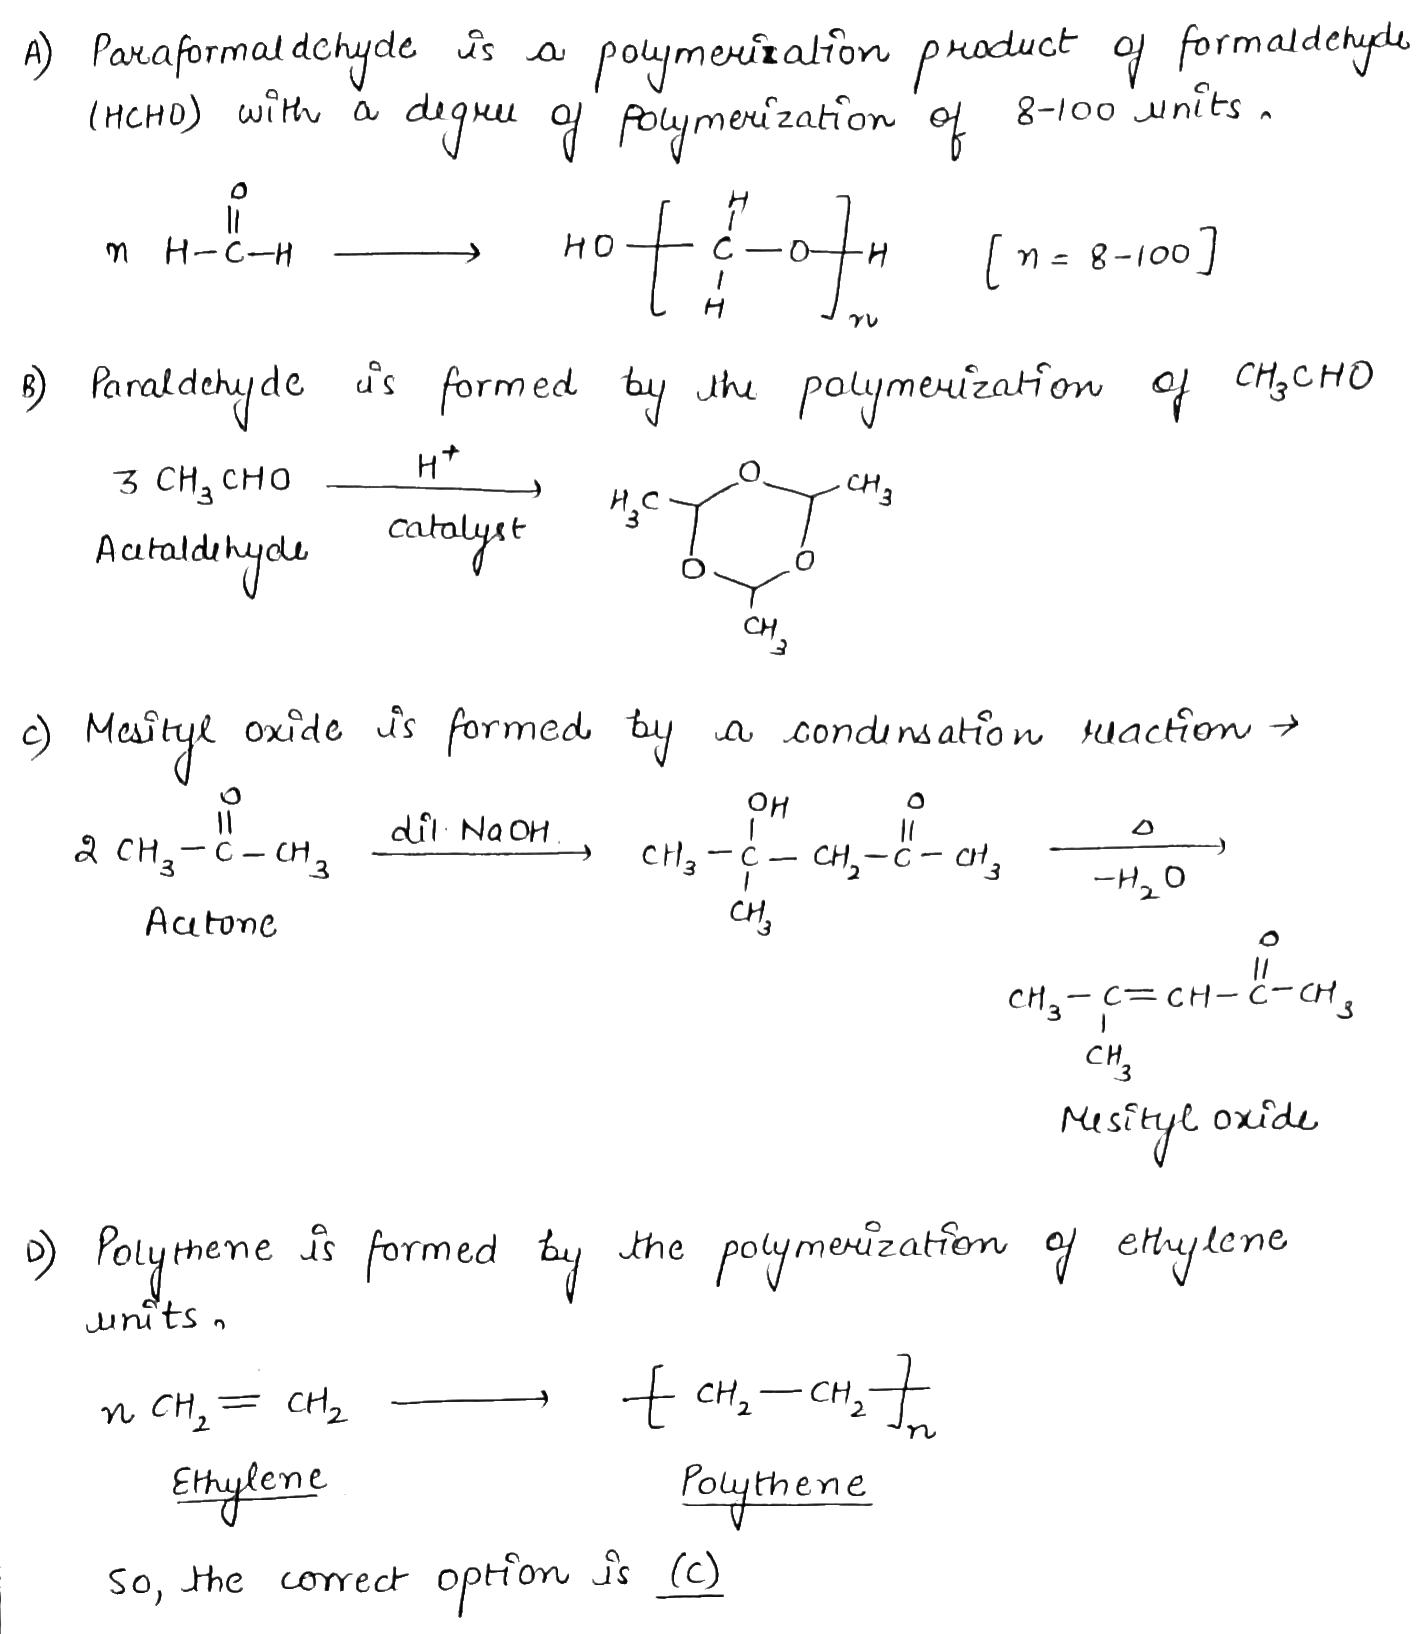 A) Paraformaldehyde is a polymerization product of formaldehyde
(HCHO) with a degree of polymerization of 8-100 units.
O
||
n H-C-H ⟶ HO-[-C-O-]-H [n = 8-100]
H
H
n
B) Paraldehyde is formed by the polymerization of CH₃CHO
3 CH₃CHO H⁺ ⟶ catalyst
Acetaldehyde
O
H₃C CH₃
O O
CH₃
C) Mesityl oxide is formed by a condensation reaction →
O OH O
2 CH₃-C-CH₃ dil. NaOH ⟶ CH₃-C-CH₂-C-CH₃ Δ ⟶ -H₂O
CH₃
Acetone
O
CH₃-C=CH-C-CH₃
CH₃
Mesityl oxide
D) Polythene is formed by the polymerization of ethylene
units.
n CH₂=CH₂ ⟶ -[-CH₂-CH₂-]-n
Ethylene Polythene
So, the correct option is (C)